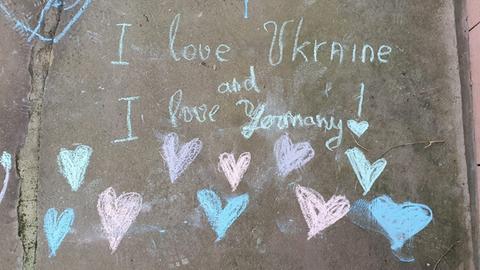 I love Ukraine
and
I love Germany!